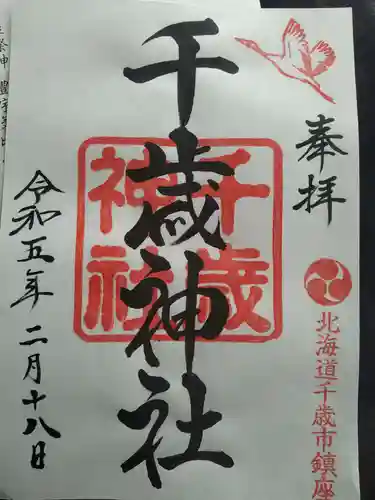 奉拝
北海道千歳市鎮座
千歳神社
千歳
神社
令和五年二月十八日